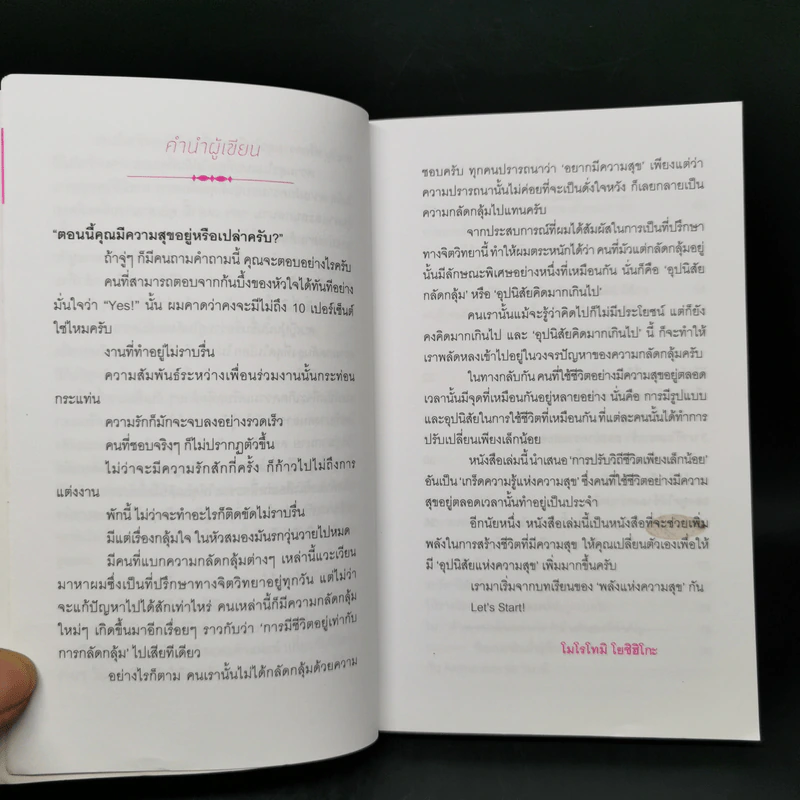 คำนำผู้เขียน
"ตอนนี้คุณมีความสุขอยู่หรือเปล่าครับ?"
ถ้าจู่ๆ ก็มีคนถามคำถามนี้ คุณจะตอบอย่างไรครับ
คนที่สามารถตอบจากก้นบึ้งของหัวใจได้ทันทีอย่าง
มั่นใจว่า "Yes!" นั้น ผมคาดว่าคงจะมีไม่ถึง 10 เปอร์เซ็นต์
ใช่ไหมครับ
งานที่ทำอยู่ไม่ราบรื่น
ความสัมพันธ์ระหว่างเพื่อนร่วมงานนั้นกระท่อน
กระแท่น
ความรักก็มักจะจบลงอย่างรวดเร็ว
คนที่ชอบจริงๆ ก็ไม่ปรากฏตัวขึ้น
ไม่ว่าจะมีความรักสักกี่ครั้ง ก็ก้าวไปไม่ถึงการ
แต่งงาน
พักนี้ ไม่ว่าจะทำอะไรก็ติดขัดไม่ราบรื่น
มีแต่เรื่องกลุ้มใจ ในหัวสมองมันรกวุ่นวายไปหมด
มีคนที่แบกความกลัดกลุ้มต่างๆ เหล่านี้แวะเวียน
มาหาผมซึ่งเป็นที่ปรึกษาทางจิตวิทยาอยู่ทุกวัน แต่ไม่ว่า
จะแก้ปัญหาไปได้สักเท่าไหร่ คนเหล่านี้ก็มีความกลัดกลุ้ม
ใหม่ๆ เกิดขึ้นมาอีกเรื่อยๆ ราวกับว่า 'การมีชีวิตอยู่เท่ากับ
การกลัดกลุ้ม' ไปเสียทีเดียว
อย่างไรก็ตาม คนเรานั้นไม่ได้กลัดกลุ้มด้วยความ
ชอบครับ ทุกคนปรารถนาว่า 'อยากมีความสุข' เพียงแต่ว่า
ความปรารถนานั้นไม่ค่อยที่จะเป็นดั่งใจหวัง ก็เลยกลายเป็น
ความกลัดกลุ้มไปแทนครับ
จากประสบการณ์ที่ผมได้สัมผัสในการเป็นที่ปรึกษา
ทางจิตวิทยานี้ ทำให้ผมตระหนักได้ว่า คนที่มัวแต่กลัดกลุ้มอยู่
นั้นมีลักษณะพิเศษอย่างหนึ่งที่เหมือนกัน นั่นก็คือ 'อุปนิสัย
กลัดกลุ้ม' หรือ 'อุปนิสัยคิดมากเกินไป'
คนเรานั้นแม้จะรู้ว่าคิดไปก็ไม่มีประโยชน์ แต่ก็ยัง
คงคิดมากเกินไป และ 'อุปนิสัยคิดมากเกินไป' นี้ ก็จะทำให้
เราพลัดหลงเข้าไปอยู่ในวงจรปัญหาของความกลัดกลุ้มครับ
ในทางกลับกัน คนที่ใช้ชีวิตอย่างมีความสุขอยู่ตลอด
เวลานั้นมีจุดที่เหมือนกันอยู่หลายอย่าง นั่นคือ การมีรูปแบบ
และอุปนิสัยในการใช้ชีวิตที่เหมือนกัน ที่แต่ละคนนั้นได้ทำการ
ปรับเปลี่ยนเพียงเล็กน้อย
หนังสือเล่มนี้ นำเสนอ 'การปรับวิถีชีวิตเพียงเล็กน้อย'
อันเป็น 'เกร็ดความรู้แห่งความสุข' ซึ่งคนที่ใช้ชีวิตอย่างมีความ
สุขอยู่ตลอดเวลานั้นทำอยู่เป็นประจำ
อีกนัยหนึ่ง หนังสือเล่มนี้เป็นหนังสือที่จะช่วยเพิ่ม
พลังในการสร้างชีวิตที่มีความสุข ให้คุณเปลี่ยนตัวเองเพื่อให้
มี 'อุปนิสัยแห่งความสุข' เพิ่มมากขึ้นครับ
เรามาเริ่มจากบทเรียนของ 'พลังแห่งความสุข' กัน
Let's Start!
โมโรโทมิ โยชิฮิโกะ